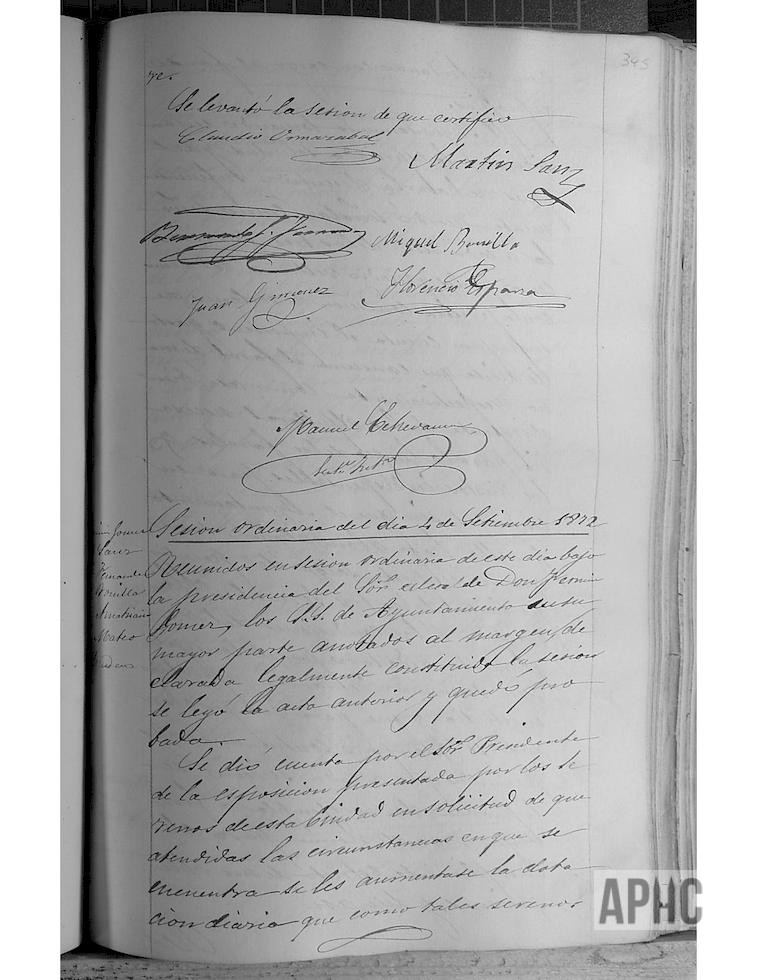 345
Se levantó la sesion de que certifico
Claudio Ormazabal
Martin Sanz
Miguel Bonilla
Juan Gimenez
Florencio Esparza
Manuel Echevarria
Sesion ordinaria del dia 4 de Setiembre 1872
Sanz
Fernandez
Bonilla
Mateo
Reunidos en sesion ordinaria de este dia bajo
la presidencia del Sor. Alcalde Don Fermin
Gomez, los S.S. de Ayuntamiento en su
mayor parte anotados al margen, de
clarada legalmente constituida la sesion
se leyó la acta anterior y quedó pro
bada
Se dió cuenta por el Sor. Presidente
de la esposicion presentada por los se
renos de esta Ciudad en solicitud de que
atendidas las circunstancias en que se
encuentra se les aumentase la dota
cion diaria que como tales serenos
APHC